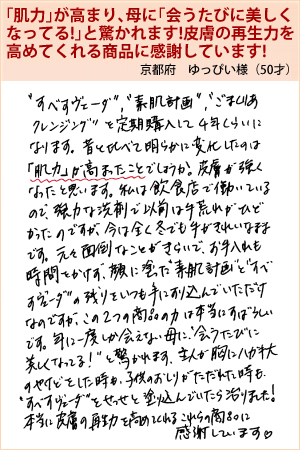 「肌力」が高まり、母に「会うたびに美しく
なってる!」と驚かれます!皮膚の再生力を
高めてくれる商品に感謝しています!
京都府　ゆっぴい様（50才）
"すべすヴェーダ"、"素肌計画"、"ごまひあ
クレンジング"と定期購入して4年くらいに
なります。昔とくらべて明らかに変化したのは
「肌力」が高まったことでしょうか。皮膚が強く
なったと思います。私は飲食店で働いている
ので、強力な洗剤で以前は手荒れがひど
かったのですが、今は全く冬でも手がきれいなまま
です。元々面倒なことがきらいで、お手入れも
時間をかけず、顔に塗った"素肌計画"と"すべ
すヴェーダ"の残りをいつも手にすり込んでいただけ
なのですが、この2つの商品の力は本当にすばらしい
です。年に一度しか会えない母に、"会うたびに
美しくなってる!"と驚かれます。主人が腕に
のやけどをした時も、子供のおしりがただれた時も、
"すべすヴェーダ"をせっせと塗り込んでいたら治りました!
本当に皮膚の再生力を高めてくれるこれらの商品に
感謝しています♡